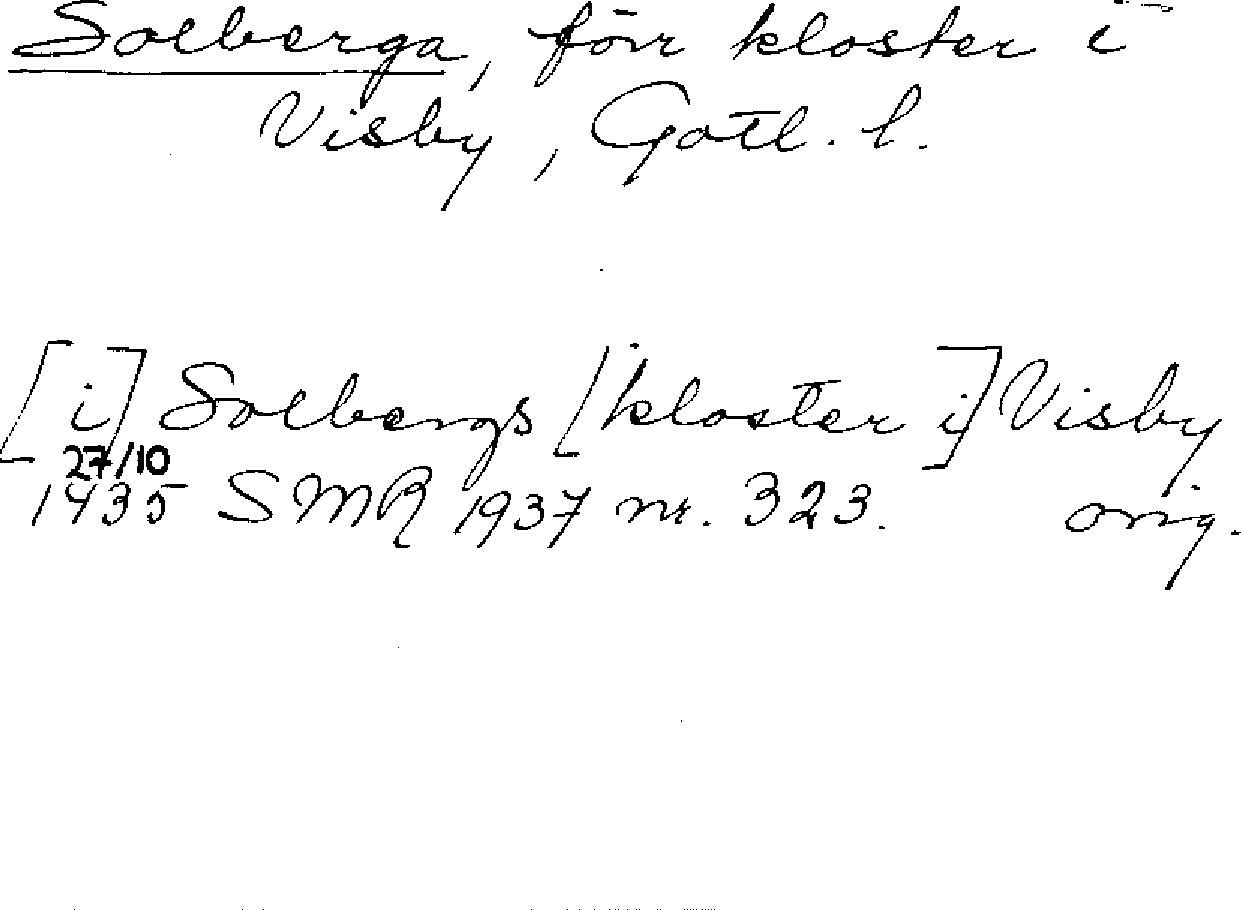 Solberga, förr kloster i
Visby, Gotl. l.
[i] Solbergs [kloster i] Visby
27/10
1435 SMR 1937 nr. 323. orig.